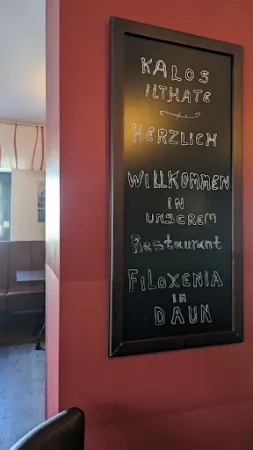 KALOS
ILTHATE
HERZLICH
WILLKOMMEN
IN
UNSEREM
Restaurant
FILOXENIA
IN
DAUN